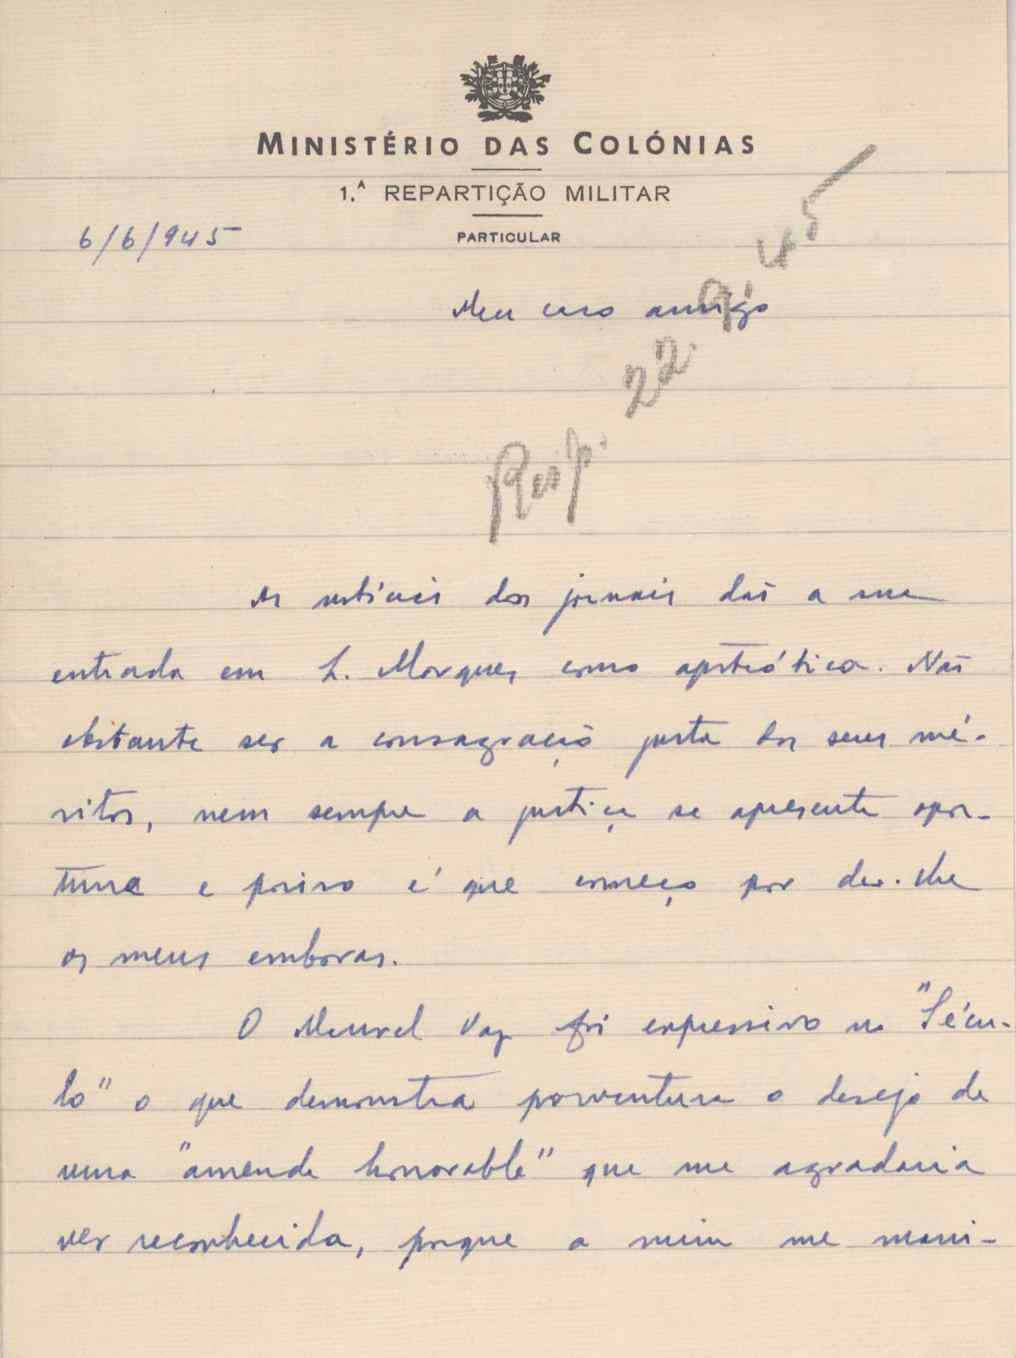 MINISTÉRIO DAS COLÓNIAS
1.ª REPARTIÇÃO MILITAR
PARTICULAR
6/6/945
Meu caro amigo
Resp. 22.9.45
As notícias dos jornais dão a sua
entrada em L. Marques como apoteótica. Não
obstante ser a consagração justa dos seus mé-
ritos, nem sempre a justiça se apresenta opor-
tuna e por isso é que começo por dar-lhe
os meus emboras.
O Manuel Vaz foi expressivo no "Sécu-
lo" o que demonstra porventura o desejo de
uma "amende honorable" que me agradaria
ver reconhecida, porque a mim me mani-